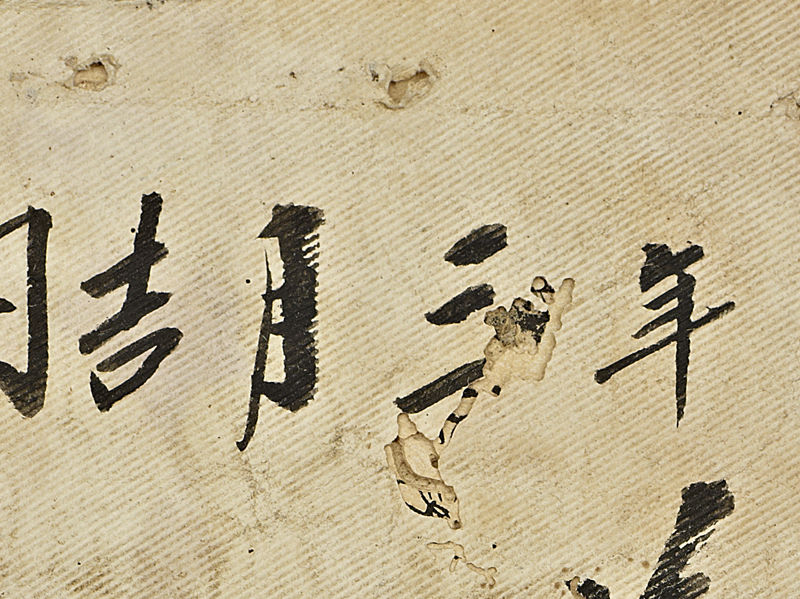 年三月吉日